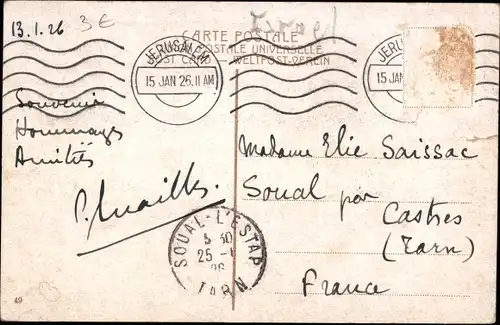 13.1.26
3€
Israel
CARTE POSTALE
POSTALE UNIVERSELLE
POST CARD WELTPOST-VEREIN
JERUSALEM
15 JAN 26.11 AM
JERUS
15 JAN
Souvenir
Hommages
Amitiés
Madame Elie Saissac
Soual par
Castres
(Tarn)
France
SOUAL-L'ESTAP
5 30
25 -1
26
TARN
49